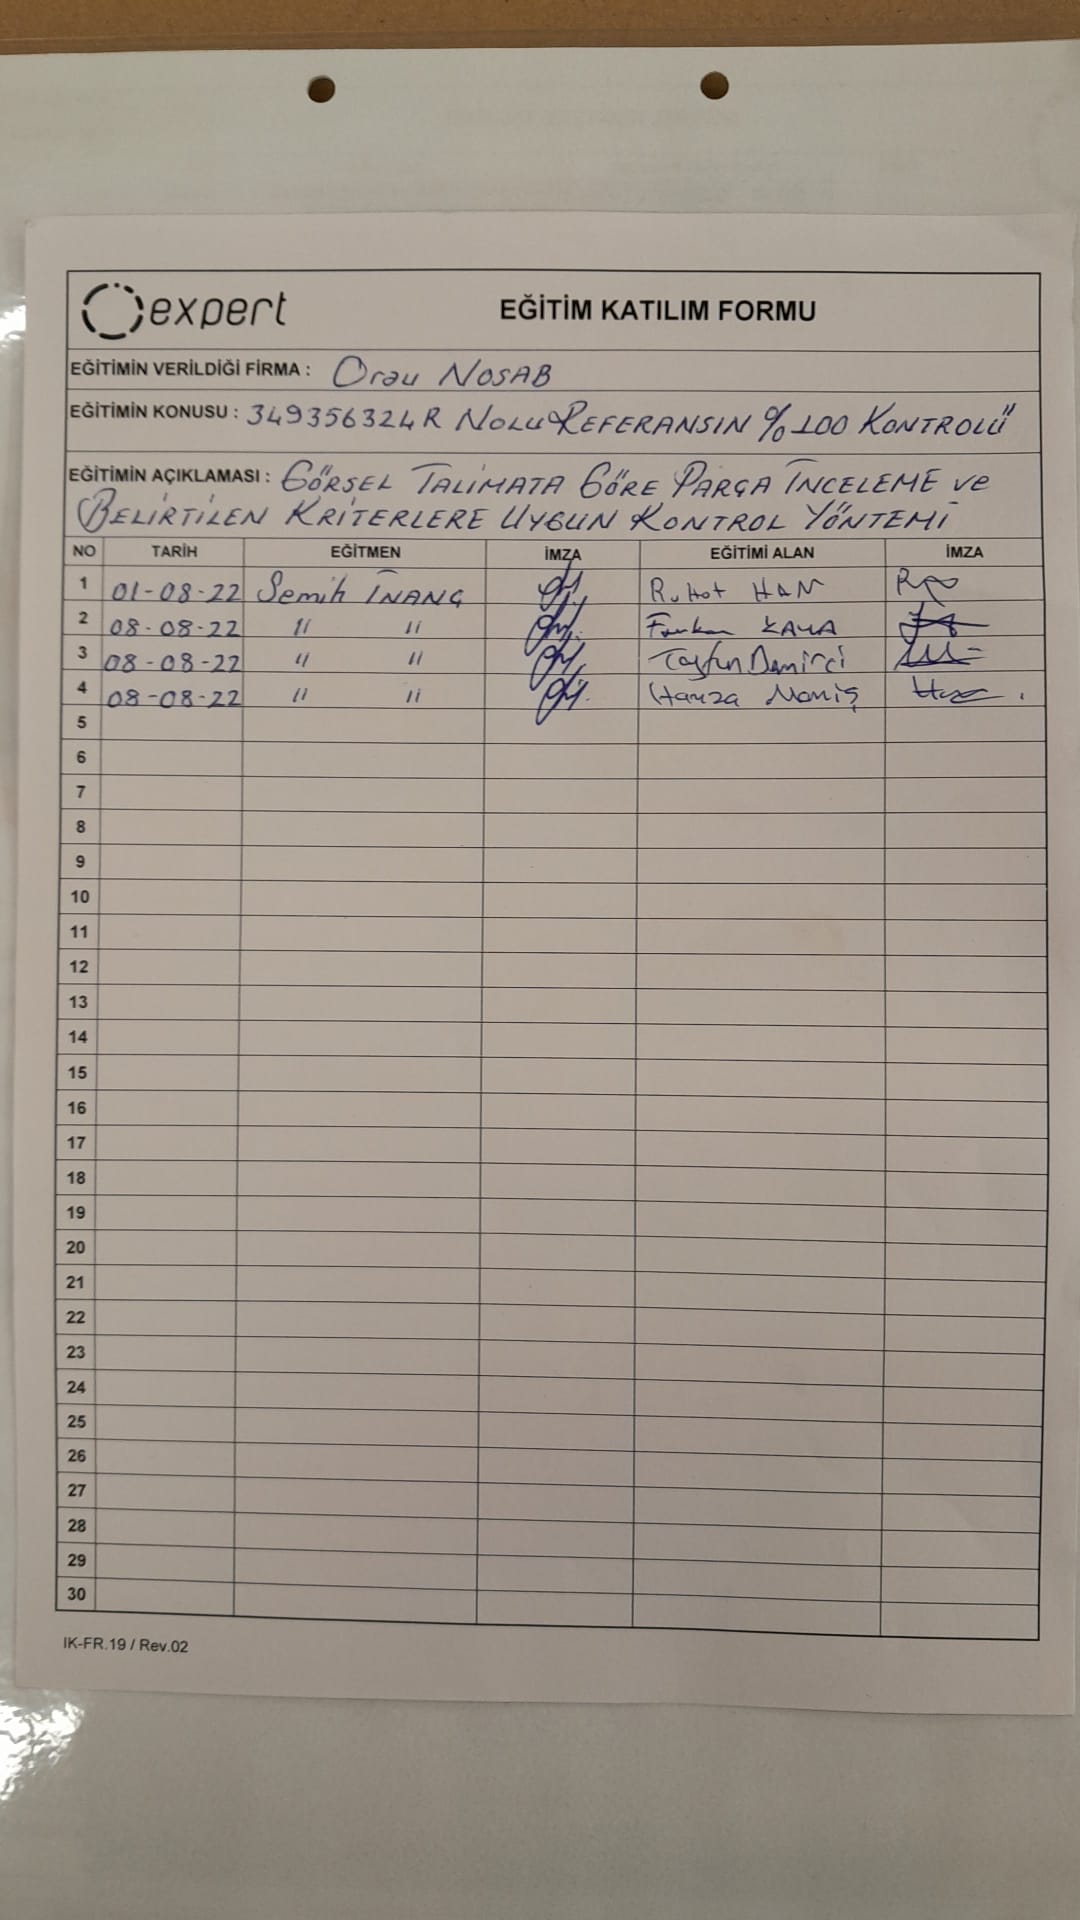 expert
EĞİTİM KATILIM FORMU
EĞİTİMİN VERİLDİĞİ FİRMA : Orau NOSAB
EĞİTİMİN KONUSU : 349356324R NOLU REFERANSIN %100 KONTROLÜ
EĞİTİMİN AÇIKLAMASI : GÖRSEL TALİMATA GÖRE PARÇA İNCELEME ve
BELİRTİLEN KRİTERLERE UYGUN KONTROL YÖNTEMİ
NO TARİH EĞİTMEN İMZA EĞİTİMİ ALAN İMZA
1 01-08-22 Semih İNANÇ HAN
2 08-08-22 " " Furkan KAYA
3 08-08-22 " " Tayfun Demirci
4 08-08-22 " " Hamza
5
6
7
8
9
10
11
12
13
14
15
16
17
18
19
20
21
22
23
24
25
26
27
28
29
30
IK-FR.19 / Rev.02